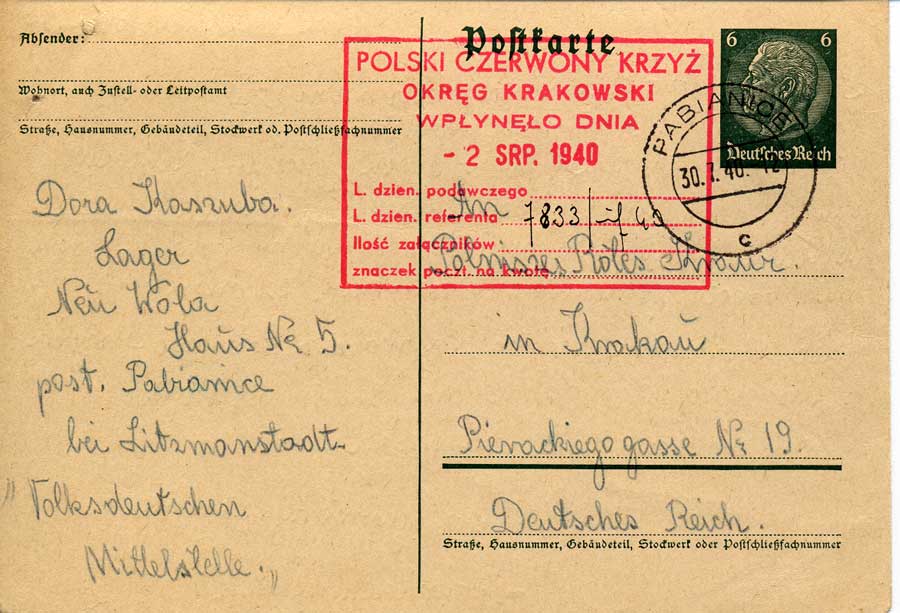 Postkarte
Absender:
Wohnort, auch Zustell- oder Leitpostamt
Straße, Hausnummer, Gebäudeteil, Stockwerk od. Postschließfachnummer
Dora Kaszuba.
Lager
Neu Wola
Haus № 5.
post. Pabianice
bei Litzmanstadt
"Volksdeutschen
Mittelstelle."
POLSKI CZERWONY KRZYŻ
OKRĘG KRAKOWSKI
WPŁYNĘŁO DNIA
- 2 SRP. 1940
L. dzien. podawczego
L. dzien. referenta 7833/
Ilość załączników
znaczek poczt. na kwotę
6 6
Deutsches Reich
PABIANICE
30.7.40.-12
c
An
Polnisches Rotes Kreuz.
in Krakau
Pierackiego gasse № 19.
Deutsches Reich.
Straße, Hausnummer, Gebäudeteil, Stockwerk oder Postschließfachnummer